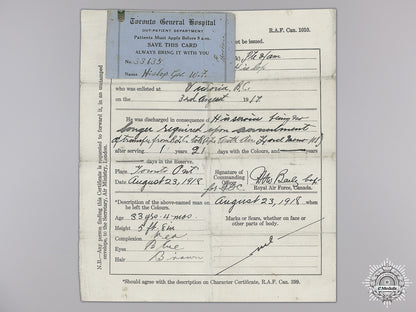 R.A.F. Can. 1010.
Toronto General Hospital
OUT-PATIENT DEPARTMENT
Patients Must Apply Before 8 a.m.
SAVE THIS CARD
ALWAYS BRING IT WITH YOU
No. 53635
Name Hislop
be issued.
who was enlisted at Victoria, B.C.
on the 3rd August 1917
He was discharged in consequence of His services being no
longer required upon
of transfer
after serving 1 21
days in the Reserve.
Place, Toronto Ont
Date August 23, 1918
Signature of Commanding Officer
Royal Air Force, Canada.
*Description of the above-named man on August 23, 1918 when
he left the Colours.
Age 33 yrs 4 mos.
Height 5 ft. 8 in
Complexion
Eyes Blue
Hair Brown
Marks or Scars, whether on face or
other parts of body.
nil
*Should agree with the description on Character Certificate, R.A.F. Can. 299.
N.B.—Any person finding this Certificate is requested to forward it, in an unstamped
envelope, to the Secretary, Air Ministry, London.
eMedals